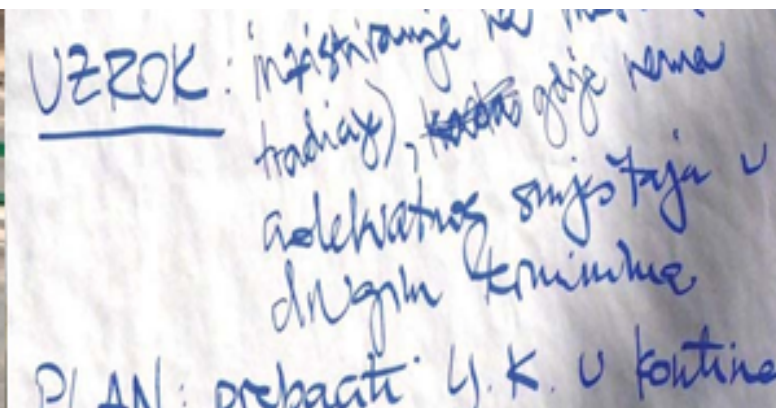 UZROK: inzistiranje na
tradicije), gdje nema
adekvatnog smještaja u
drugim terminima
PLAN: prebaciti LJ. K. U kontine